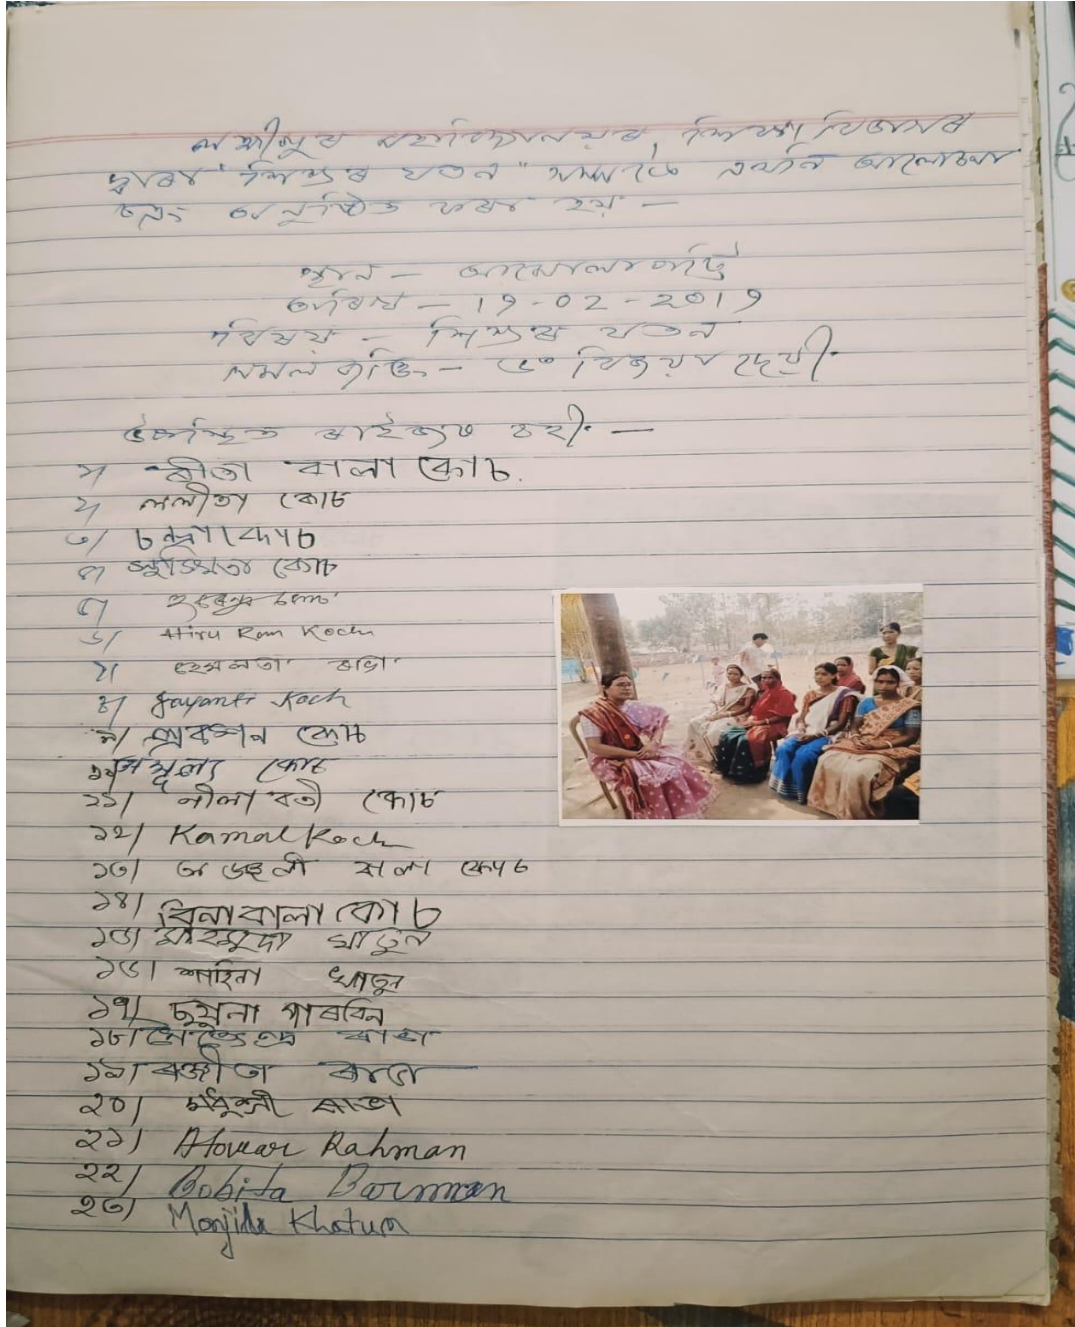 লক্ষীপুৰ মহাবিদ্যালয়ৰ, শিক্ষা বিভাগৰ
দ্বাৰা "শিশুৰ যতন" সন্দৰ্ভত এখনি আলোচনা
চক্ৰ অনুষ্ঠিত কৰা হয় —
স্থান —
তাৰিখ — 17-02-2017
বিষয় — শিশুৰ যতন
সমল ব্যক্তি — ড° বিজয়া দেৱী
উপস্থিত ৰাইজৰ চহী —
১/ বালা কোচ
২/ ললীতা কোচ
৩/ চন্দ্ৰা কোচ
৪/ কোচ
৫/
৬/ Hiru Ram Koch
৭/ হেমলতা ৰাভা
৮/ Jayanti Koch
৯/ কোচ
১০/ কোচ
১১/ লীলাবতী কোচ
১২/ Kamal Koch
১৩/ বালা কোচ
১৪/ বিনাবালা কোচ
১৫/ মাহমুদা খাতুন
১৬/ শাহিনা খাতুন
১৭/ পাৰবিন
১৮/ ৰাভা
১৯/ ৰঞ্জীতা ৰাভা
২০/ মধুশ্ৰী ৰাভা
২১/ Rahman
২২/ Bobita Barman
২৩/ Monjida Khatun